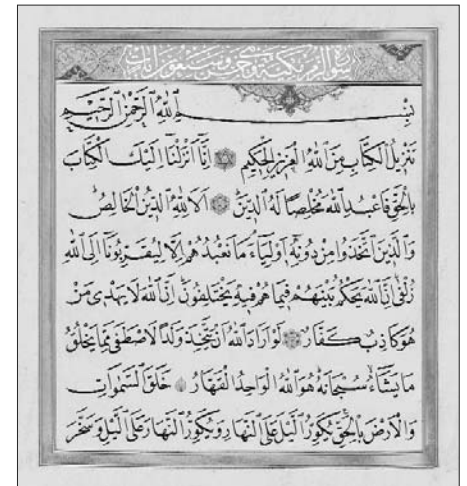 سورة الزمر مكية وهي خمس وسبعون ايات
بِسْمِ اللهِ الرَّحْمٰنِ الرَّحِيمِ
تَنْزِيلُ الْكِتَابِ مِنَ اللهِ الْعَزِيزِ الْحَكِيمِ اِنَّا اَنْزَلْنَا اِلَيْكَ الْكِتَابَ
بِالْحَقِّ فَاعْبُدِ اللهَ مُخْلِصًا لَهُ الدِّينَ اَلَا لِلهِ الدِّينُ الْخَالِصُ
وَالَّذِينَ اتَّخَذُوا مِنْ دُونِهِ اَوْلِيَاءَ مَا نَعْبُدُهُمْ اِلَّا لِيُقَرِّبُونَا اِلَى اللهِ
زُلْفٰى اِنَّ اللهَ يَحْكُمُ بَيْنَهُمْ فِيمَا هُمْ فِيهِ يَخْتَلِفُونَ اِنَّ اللهَ لَا يَهْدِى مَنْ
هُوَ كَاذِبٌ كَفَّارٌ لَوْ اَرَادَ اللهُ اَنْ يَتَّخِذَ وَلَدًا لَاصْطَفٰى مِمَّا يَخْلُقُ
مَا يَشَاءُ سُبْحَانَهُ هُوَ اللهُ الْوَاحِدُ الْقَهَّارُ خَلَقَ السَّمٰوَاتِ
وَالْاَرْضَ بِالْحَقِّ يُكَوِّرُ الَّيْلَ عَلَى النَّهَارِ وَيُكَوِّرُ النَّهَارَ عَلَى الَّيْلِ وَسَخَّرَ